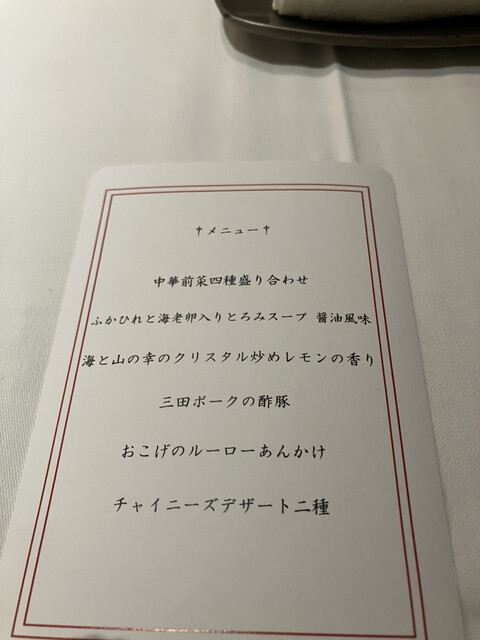 †メニュー†
中華前菜四種盛り合わせ
ふかひれと海老卵入りとろみスープ 醤油風味
海と山の幸のクリスタル炒めレモンの香り
三田ポークの酢豚
おこげのルーローあんかけ
チャイニーズデザート二種